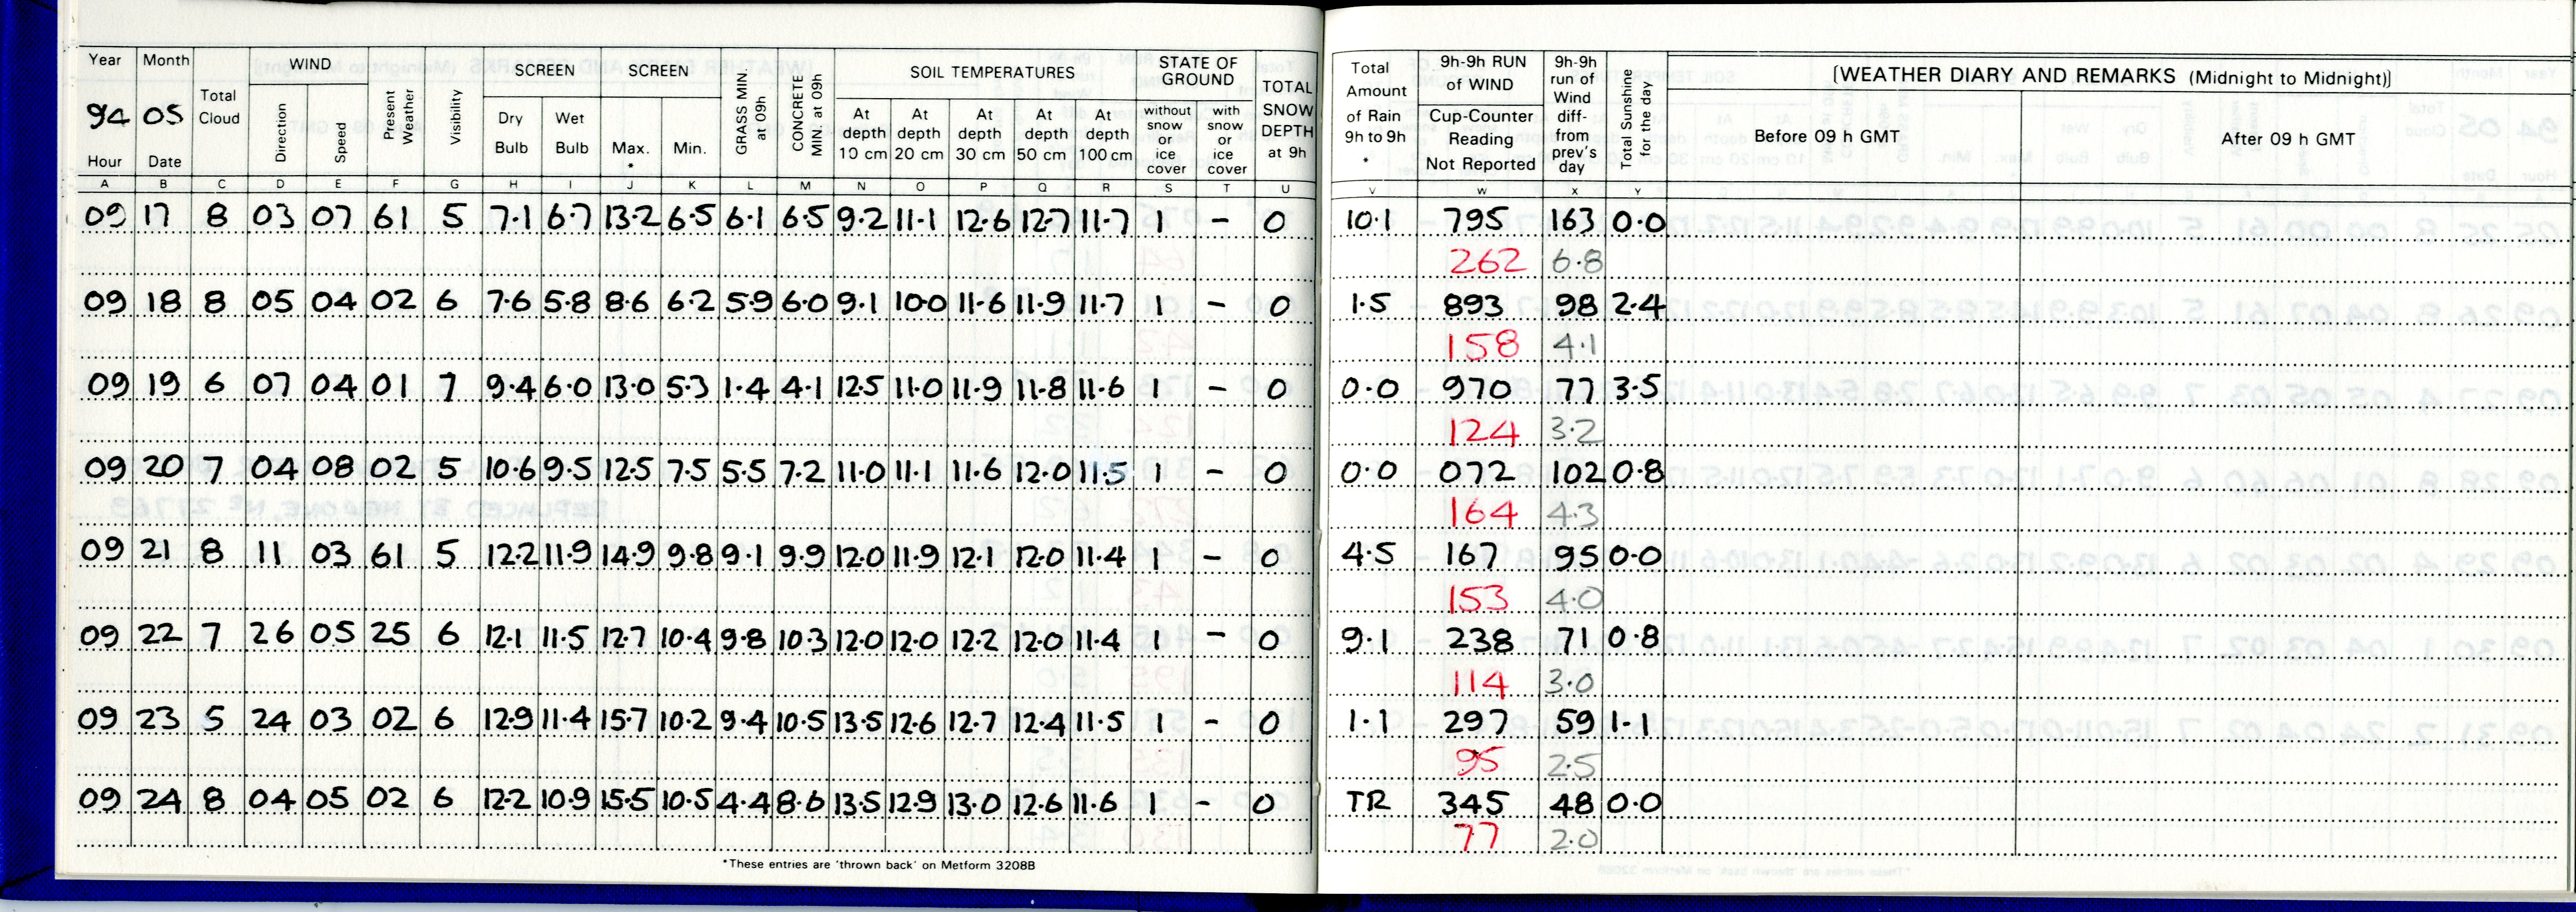 Year Month Total Cloud WIND Present Weather Visibility SCREEN SCREEN GRASS MIN. at 09h CONCRETE MIN. at 09h SOIL TEMPERATURES STATE OF GROUND TOTAL SNOW DEPTH at 9h
94 05 Direction Speed Dry Bulb Wet Bulb Max. * Min. At depth 10 cm At depth 20 cm At depth 30 cm At depth 50 cm At depth 100 cm without snow or ice cover with snow or ice cover
Hour Date
A B C D E F G H I J K L M N O P Q R S T U
09 17 8 03 07 61 5 7.1 6.7 13.2 6.5 6.1 6.5 9.2 11.1 12.6 12.7 11.7 1 - 0
09 18 8 05 04 02 6 7.6 5.8 8.6 6.2 5.9 6.0 9.1 10.0 11.6 11.9 11.7 1 - 0
09 19 6 07 04 01 7 9.4 6.0 13.0 5.3 1.4 4.1 12.5 11.0 11.9 11.8 11.6 1 - 0
09 20 7 04 08 02 5 10.6 9.5 12.5 7.5 5.5 7.2 11.0 11.1 11.6 12.0 11.5 1 - 0
09 21 8 11 03 61 5 12.2 11.9 14.9 9.8 9.1 9.9 12.0 11.9 12.1 12.0 11.4 1 - 0
09 22 7 26 05 25 6 12.1 11.5 12.7 10.4 9.8 10.3 12.0 12.0 12.2 12.0 11.4 1 - 0
09 23 5 24 03 02 6 12.9 11.4 15.7 10.2 9.4 10.5 13.5 12.6 12.7 12.4 11.5 1 - 0
09 24 8 04 05 02 6 12.2 10.9 15.5 10.5 4.4 8.6 13.5 12.9 13.0 12.6 11.6 1 - 0
*These entries are 'thrown back' on Metform 3208B
Total Amount of Rain 9h to 9h * 9h-9h RUN of WIND Cup-Counter Reading Not Reported 9h-9h run of Wind diff- from prev's day Total Sunshine for the day [WEATHER DIARY AND REMARKS (Midnight to Midnight)]
Before 09 h GMT After 09 h GMT
V W X Y
10.1 795 163 0.0
262 6.8
1.5 893 98 2.4
158 4.1
0.0 970 77 3.5
124 3.2
0.0 072 102 0.8
164 4.3
4.5 167 95 0.0
153 4.0
9.1 238 71 0.8
114 3.0
1.1 297 59 1.1
95 2.5
TR 345 48 0.0
77 2.0